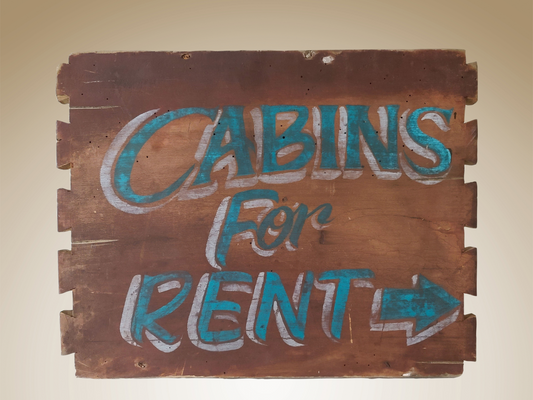 CABINS
For
RENT